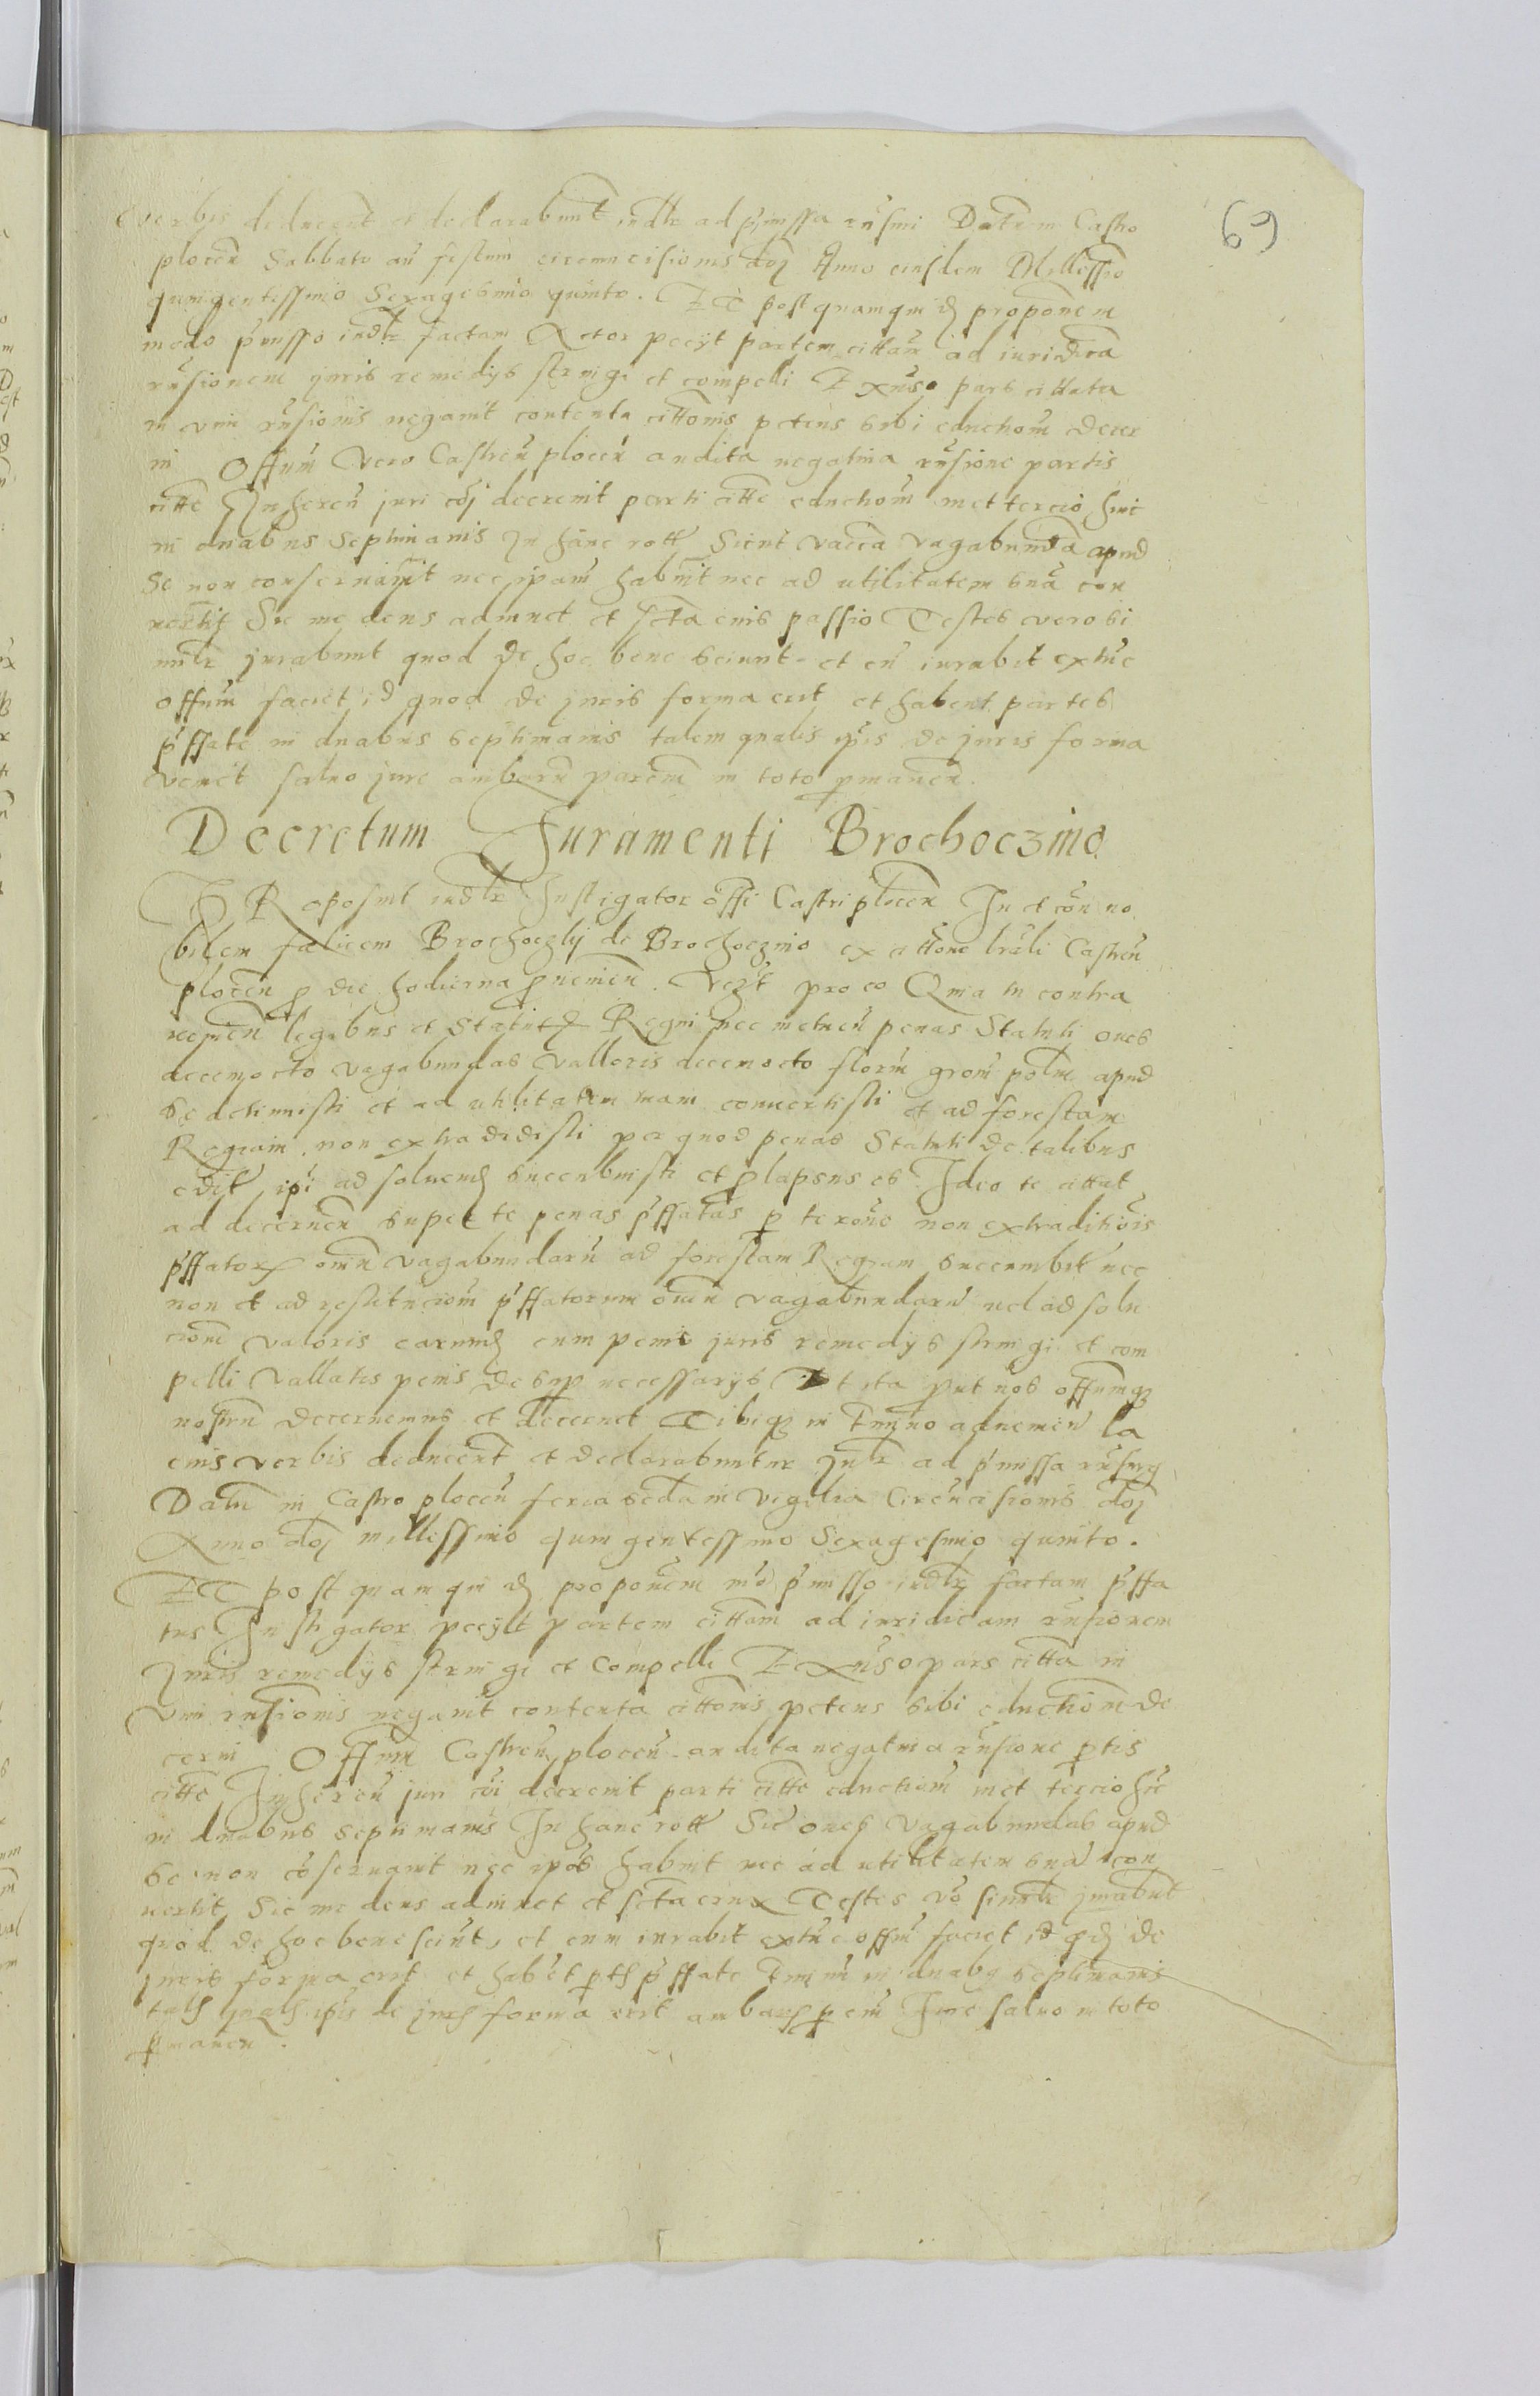 69
verbis deducent et declarabunt indlr ad pmissa rnsuri Datum Castro
plocen Sabbato an festum circumcisionis dnj Anno eiusdem Millessimo
quingentessimo Sexagesimo quinto. Et postquamquid proponem
modo pmisso indlr factam Actor pecijt partem cittam ad iuridica
rnsionem juris remedijs stringi et compelli Exnso pars cittata
in vim rnsionis negavit contenta cittonis petens sibi eductiom decer
ni Offium vero Castren plocen audita negatiua rnsione partis
citte Inheren juri coj decrenit parti citte eductiom mettercio hinc
in duabus septimanis In hanc rott Sicut vacca vagabunda apud
Se non conseruauit nec ipam habuit nec ad utilitatem sua con
nertit Sic me deus adiuuet et scta eius passio Testes vero si
milr jurabunt quod de hoc bene sciunt et cu iurabit extuc
offium faciet id quod de juris forma erit et habent partes
pffate in duabus septimanis talem qualis ipis de juris forma
venit saluo jure ambaru parciu in toto pmanen.
Decretum Juramenti Brochoczino
PRoposuit indlr Instigator offi Castri plocen In et con no
bilem felicem Brochoczkij de Brochoczino ex cittone lrali Castren
plocen p die hodierna pueniem. Vezt pro eo Qma tu contra
uenien legabus et Statutis Regni nec metuen penas Statuti oues
decemocto vagabundas valloris decemocto floru grom polm apud
Se detinuisti et ad utilitatem tuam conuertisti et ad forestam
Regiam non extradidisti per quod penas Statuti de talibus
edit ipi ad soluend succubuisti et plapsus es Ideo te cittat
ad decernen super te penas pffatas p te rone non extraditiois
pffator oium vagabundaru ad forestam Regiam succumbit nec
non et ad restituciom pffatorum oium vagabundaru uel ad solu
ciom valoris earund cum penis juris remedijs stringi et com
pelli vallatis penis desup necessarijs Et ita put nos offiumq
nostru decernemus et decernet Tibiq in Tmino adueniem la
cius verbis deducent et declarabuntur Indlr ad pmissa rnsurq
Datu in Castro plocen feria scda in vigilia Circucisionis dnj
Anno dnj millessimo quingentessimo Sexagesimo quinto.
Et postquamquid proponem mo pmisso indlr factam pffa
tus Instigator pecijt partem cittam ad iuridicam rnsionem
Juris remedijs stringi et compelli Exnso pars citta in
vim rnsionis negauit contenta cittonis petens sibi eductiom de
cerni Offium Castren plocen audita negatiua rnsione ptis
citte Inheren juri coi decrenit parti citte eductiom met tercio hic
in duabus septimanis In hanc rott Sic oues vagabundas apud
se non coseruauit nec ipas habuit nec ad utilitatem sua con
uertit Sic me deus adiuuet et scta crux Testes vo similr jurabut
quod de hoc bene sciut, et cum iurabit extuc offiu faciet id qd de
juris forma erit et habet ptes pffate Tminu in duabq septimanis
tales quales ipis de juris forma erit ambarum pciu Jure saluo in toto
pmanen.